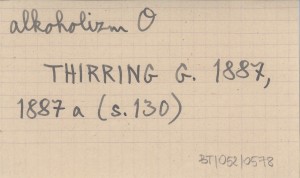 alkoholizm O
THIRRING G. 1887,
1887 a (s. 130)
ST/052/0578